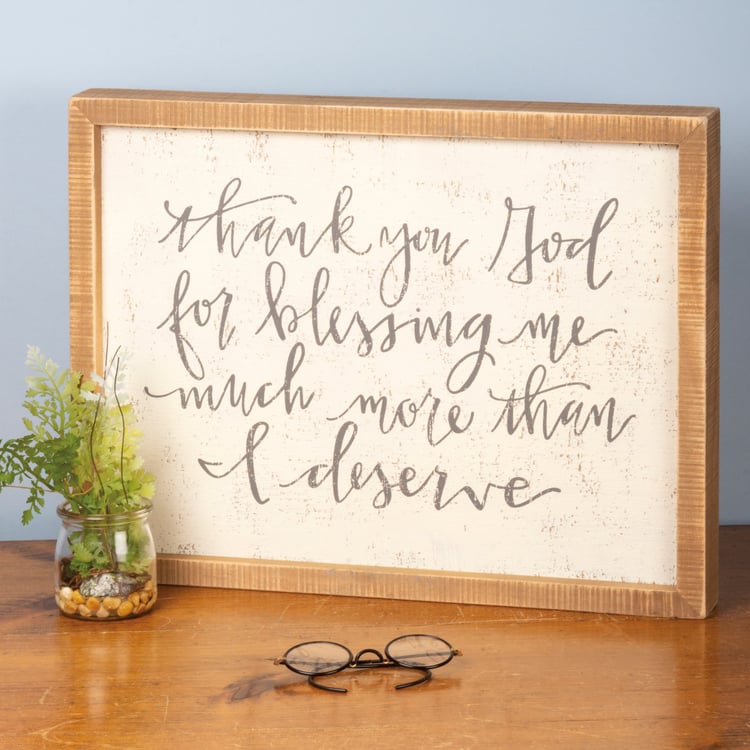 thank you God
for blessing me
much more than
I deserve